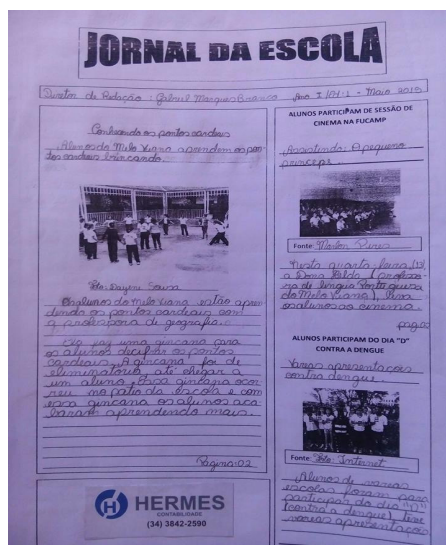 JORNAL DA ESCOLA
Diretor de Redação: Gabriel Marques Branco Ano I/Nº1 - Maio 2015
Conhecendo os pontos cardeais
Alunos do Melo Viana aprendem os pon-
tos cardeais brincando.
Foto: Dayene Sousa
Os alunos do Melo Viana estão apren
dendo os pontos cardeais com
a professora de geografia.
Ela faz uma gincana para
os alunos decifrar os pontos
cardeais. A gincana foi de
eliminatória até chegar a
um aluno. Essa gincana ocor
reu no patio da escola e com
essa gincana os alunos aca
baram aprendendo mais.
Página: 02
HERMES
CONTABILIDADE
(34) 3842-2590
ALUNOS PARTICIPAM DE SESSÃO DE
CINEMA NA FUCAMP
Assistindo: O pequeno
principe
Fonte: Marlon Pires
Nesta quarta-feira, (13)
a Dona Valda (professo
ra de lingua Portuguesa
do Melo Viana), leva
os alunos ao cinema.
pag:02
ALUNOS PARTICIPAM DO DIA "D"
CONTRA A DENGUE
Varias apresentações
contra dengue
Fonte: Foto: Internet
Alunos de varias
escolas foram para
participar do dia "D"
(contra a dengue) teve
varias apresentações